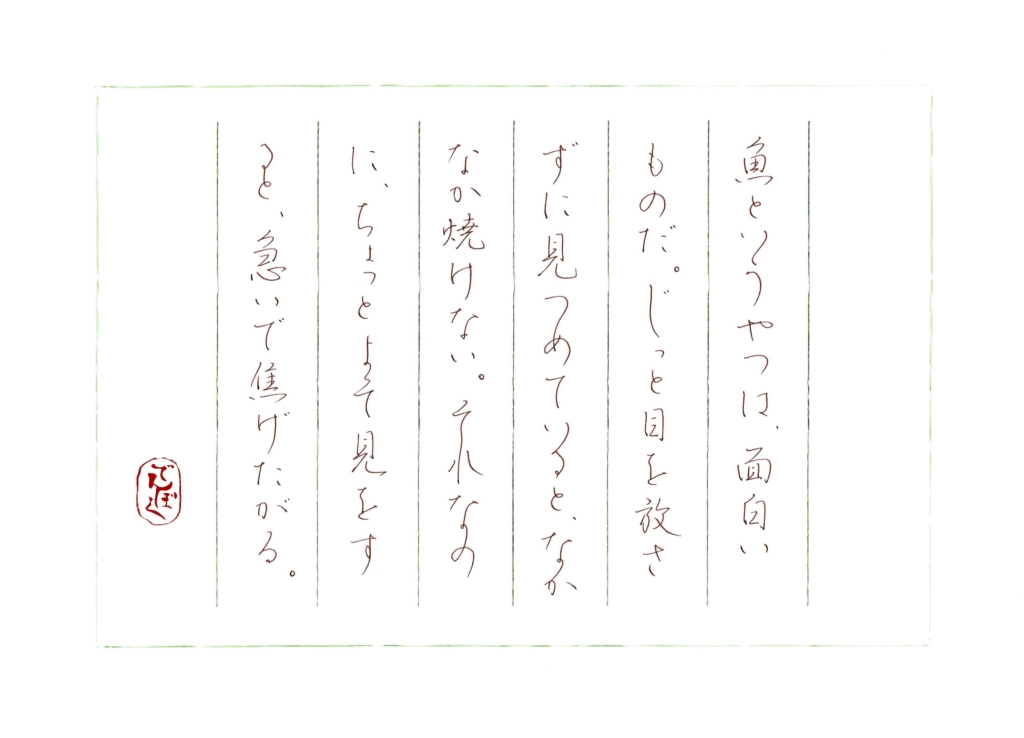 魚というやつは、面白い
ものだ。じっと目を放さ
ずに見つめていると、なか
なか焼けない。それなの
に、ちょっとよそ見をす
ると、急いで焦げたがる。
でんぼく